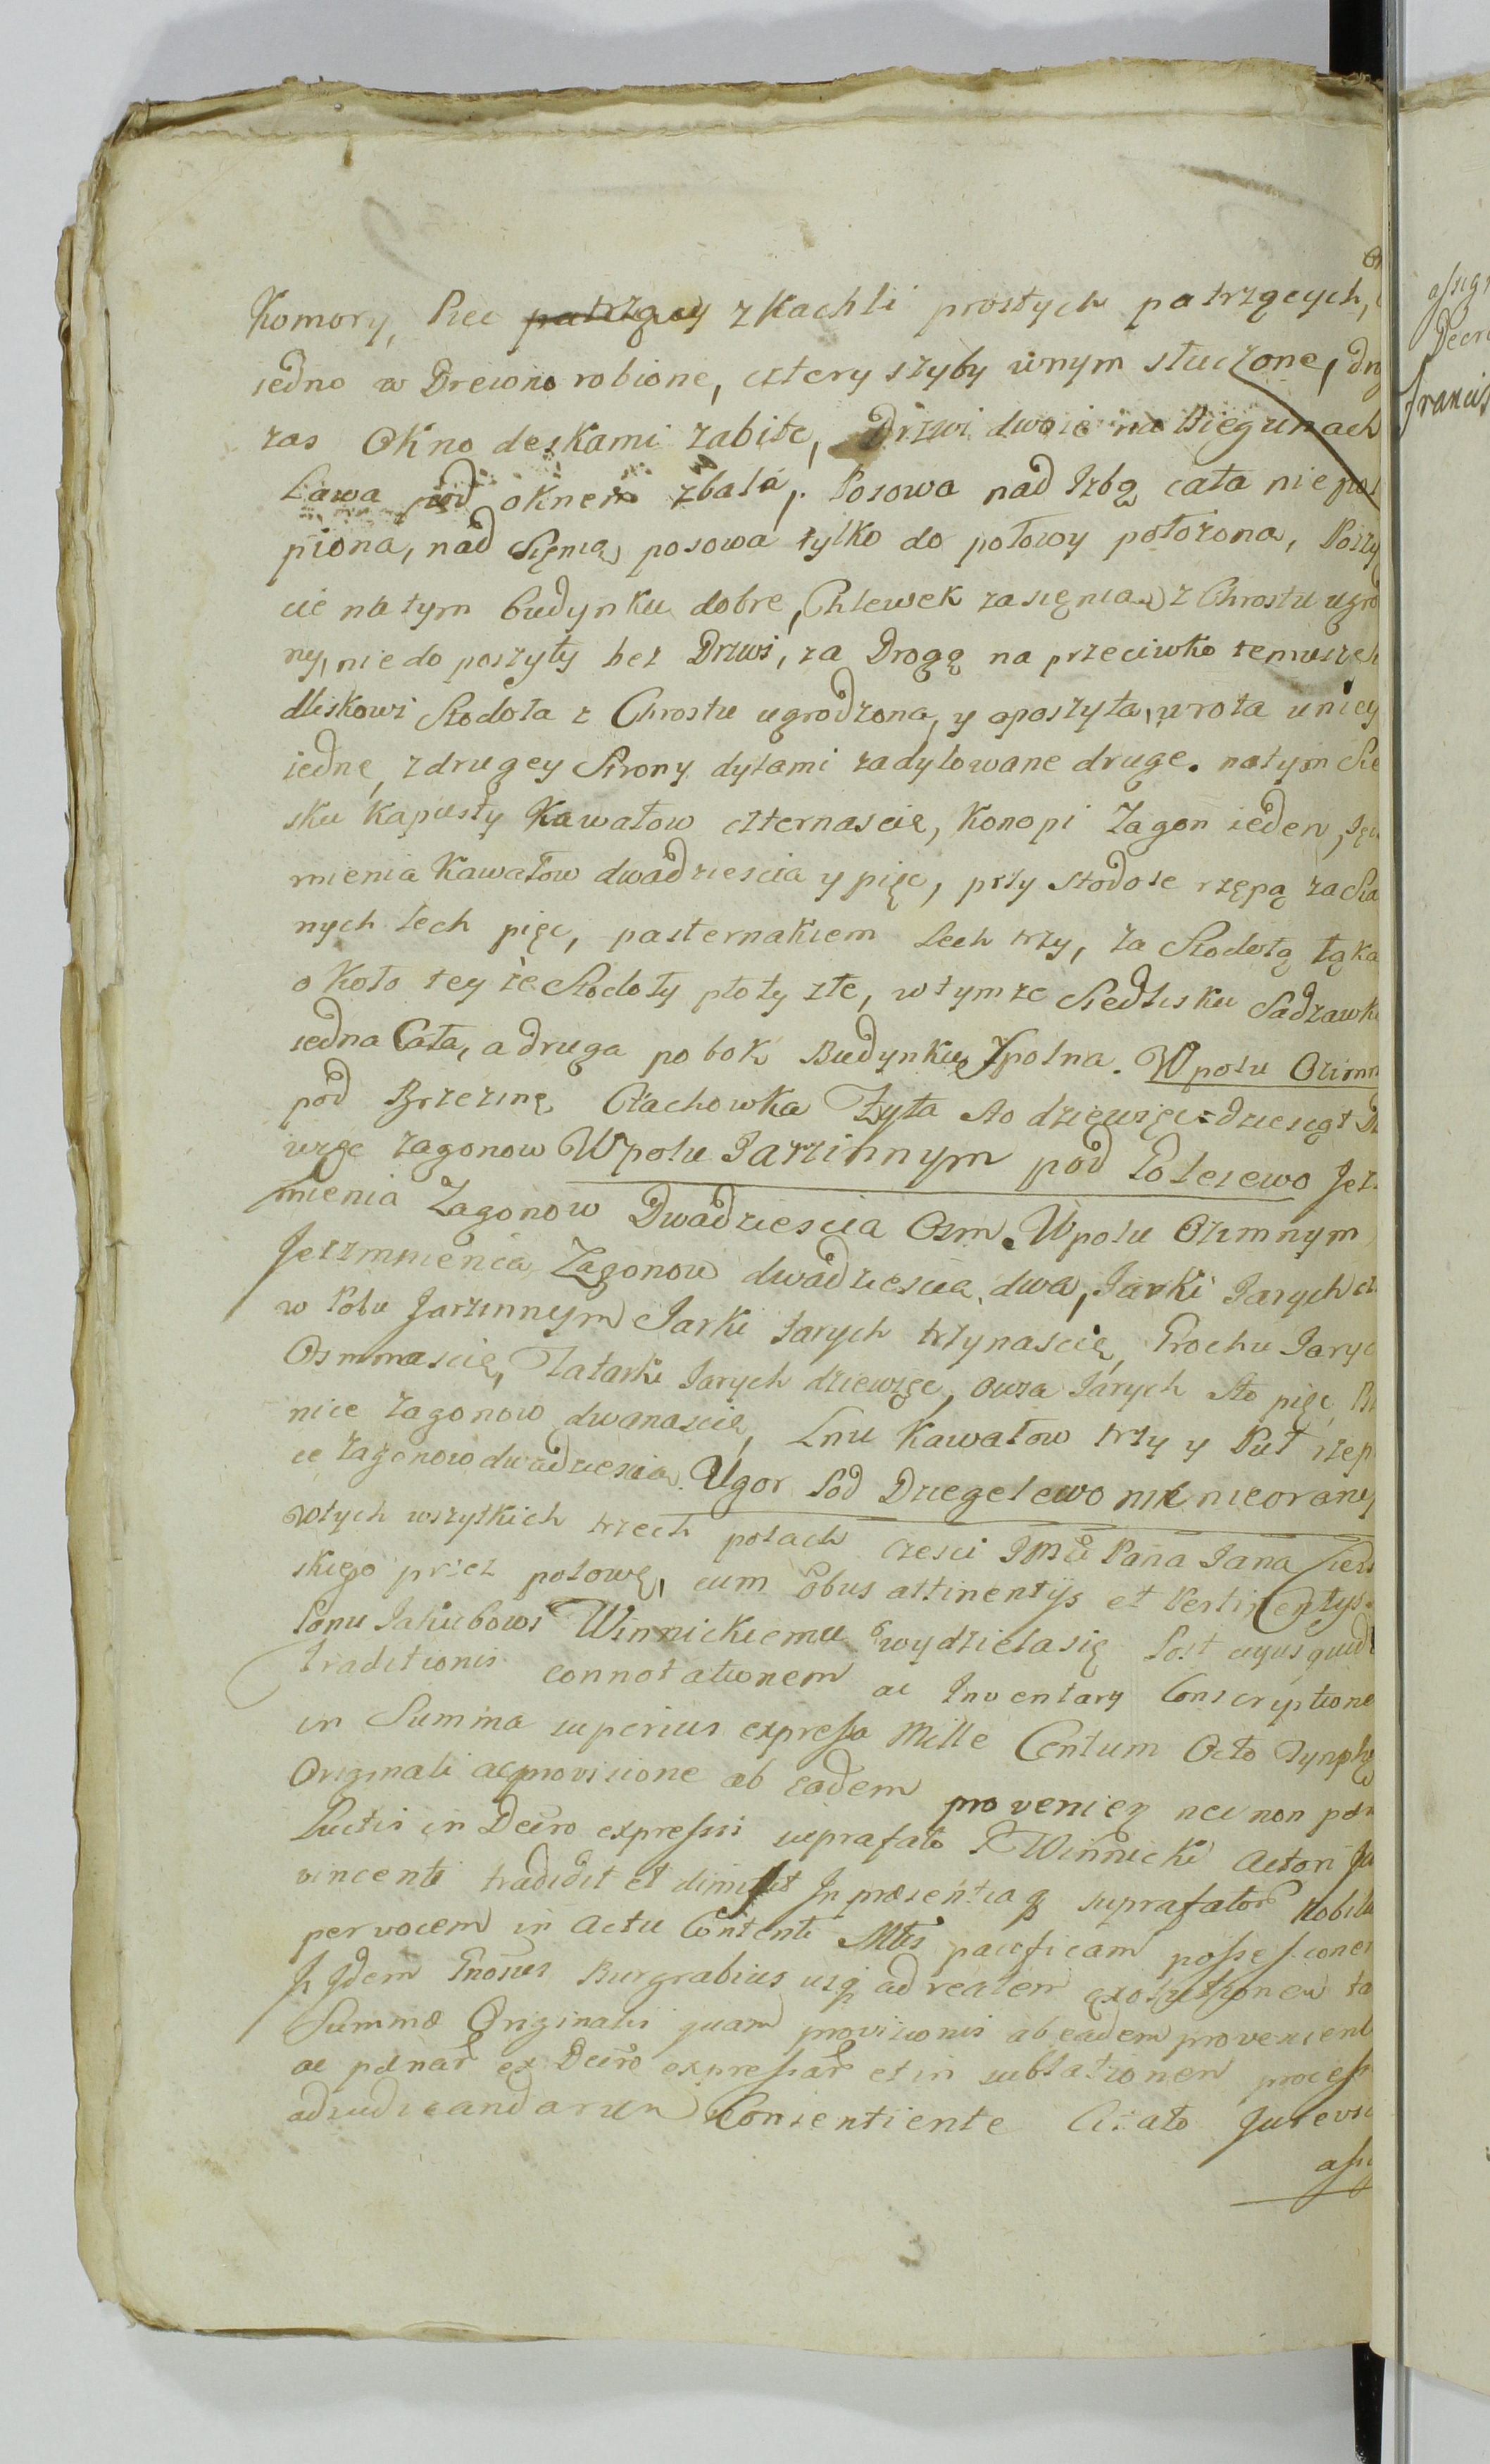 Komory, Piec patrzący z Kachli prostych patrzących,
iedno w Drewno robione, cztery szyby wnym stuczone, dru
zas Okno deskami zabite, Drzwi dwoie na Biegunach
Lawa pod oknem zbala, Posowa nad Izbą cała nie
piona, nad Sięnią posowa tylko do połowy położona, Poszy
cie natym budynku dobre, Chlewek zasięnią z Chrostu ugro
ny, niedoposzyty bez Drzwi, za Drogą na przeciwko temusz
dliskowi Stodoła z Chrostu ugrodzona, y oposzyta, wrota uniey
iedne, zdrugey Strony dylami zadylowane druge. natym Sie
sku Kapusty Kawałow czternascie, Konopi Zagon ieden, Ięc
mienia Kawałow dwadziescia y pięc, przy stodole rzępą za Sia
nych lech pięc, pasternakiem Lech trzy, za Stodołą łąka
około teyże Stodoły płoty złe, wtymze Siedlisku Sadzawk
iedna Cała, a druga pobok Budynku Spolna. Wpolu Ozimn
pod Brzezinę Ćłachowka Żyta sto dziewięc=dziesiąt D
więc zagonow Wpolu Jarzinnym pod Polesewo Jęz
mienia Zagonow Dwadziescia Osm. Wpolu Ozimnym
Jęzzmmienia Zagonow dwadziescia dwa, Jarki Jarych
w Polu Jarzinnym Jarki Jarych trzynascie, Grochu Jaryc
Osmnascie, Tatarki Jarych dziewięc, owsa Jarych sto pięc,
nice zagonow dwanascie, Lnu Kawałow trzy y Puł
ce zagonow dwadziescia. Ugor Pod Dzięgelewo nieorany
wtych wszytkich trzech polach czesci JMci Pana Jana
skiego przez połowę, cum omnibus attinentijs et Pertinentijs
Panu Jakubowi Winnickiemu wydziela się Post cujus quid
Traditionis connotationem ac Inventary Conscriptione
in Summa superius expressa Mille Centum Octo Tynph
Originali ac provisione ab eadem provenien nec non
Luctis in Decro expressis suprafato Winnicki Actori Ju
vincenti tradidit et dimisit In præsentiaq suprafator Nobiliu
per vocem in Actu Contenti Mtis pacificam possessionem
Idem Gnosus Burgrabius usq ad realem exolutionem ta
Summæ Originalis quam provisionis ab eadem provenient
ac pœnar ex Decro expressar et in sublationem process
adiudicandarum Consentiente Citato Jurevi
assi
assig
Decre
francis